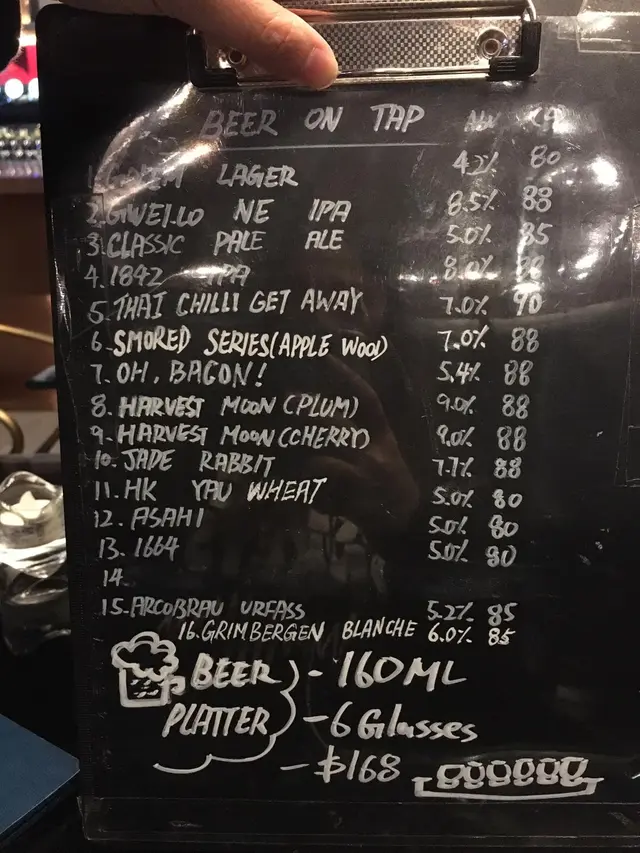 BEER ON TAP
LAGER 4.2% 80
2. GWEI.LO NE IPA 8.5% 88
3. CLASSIC PALE ALE 5.0% 85
4. 1842 IPA 8.0% 88
5. THAI CHILLI GET AWAY 7.0% 90
6. SMORED SERIES (APPLE WOOD) 7.0% 88
7. OH, BACON! 5.4% 88
8. HARVEST MOON (PLUM) 9.0% 88
9. HARVEST MOON (CHERRY) 9.0% 88
10. JADE RABBIT 7.7% 88
11. HK YAU WHEAT 5.0% 80
12. ASAHI 5.0% 80
13. 1664 5.0% 80
14.
15. ARCOBRAU URFASS 5.2% 85
16. GRIMBERGEN BLANCHE 6.0% 85
BEER - 160ML
PLATTER - 6 Glasses
- $168